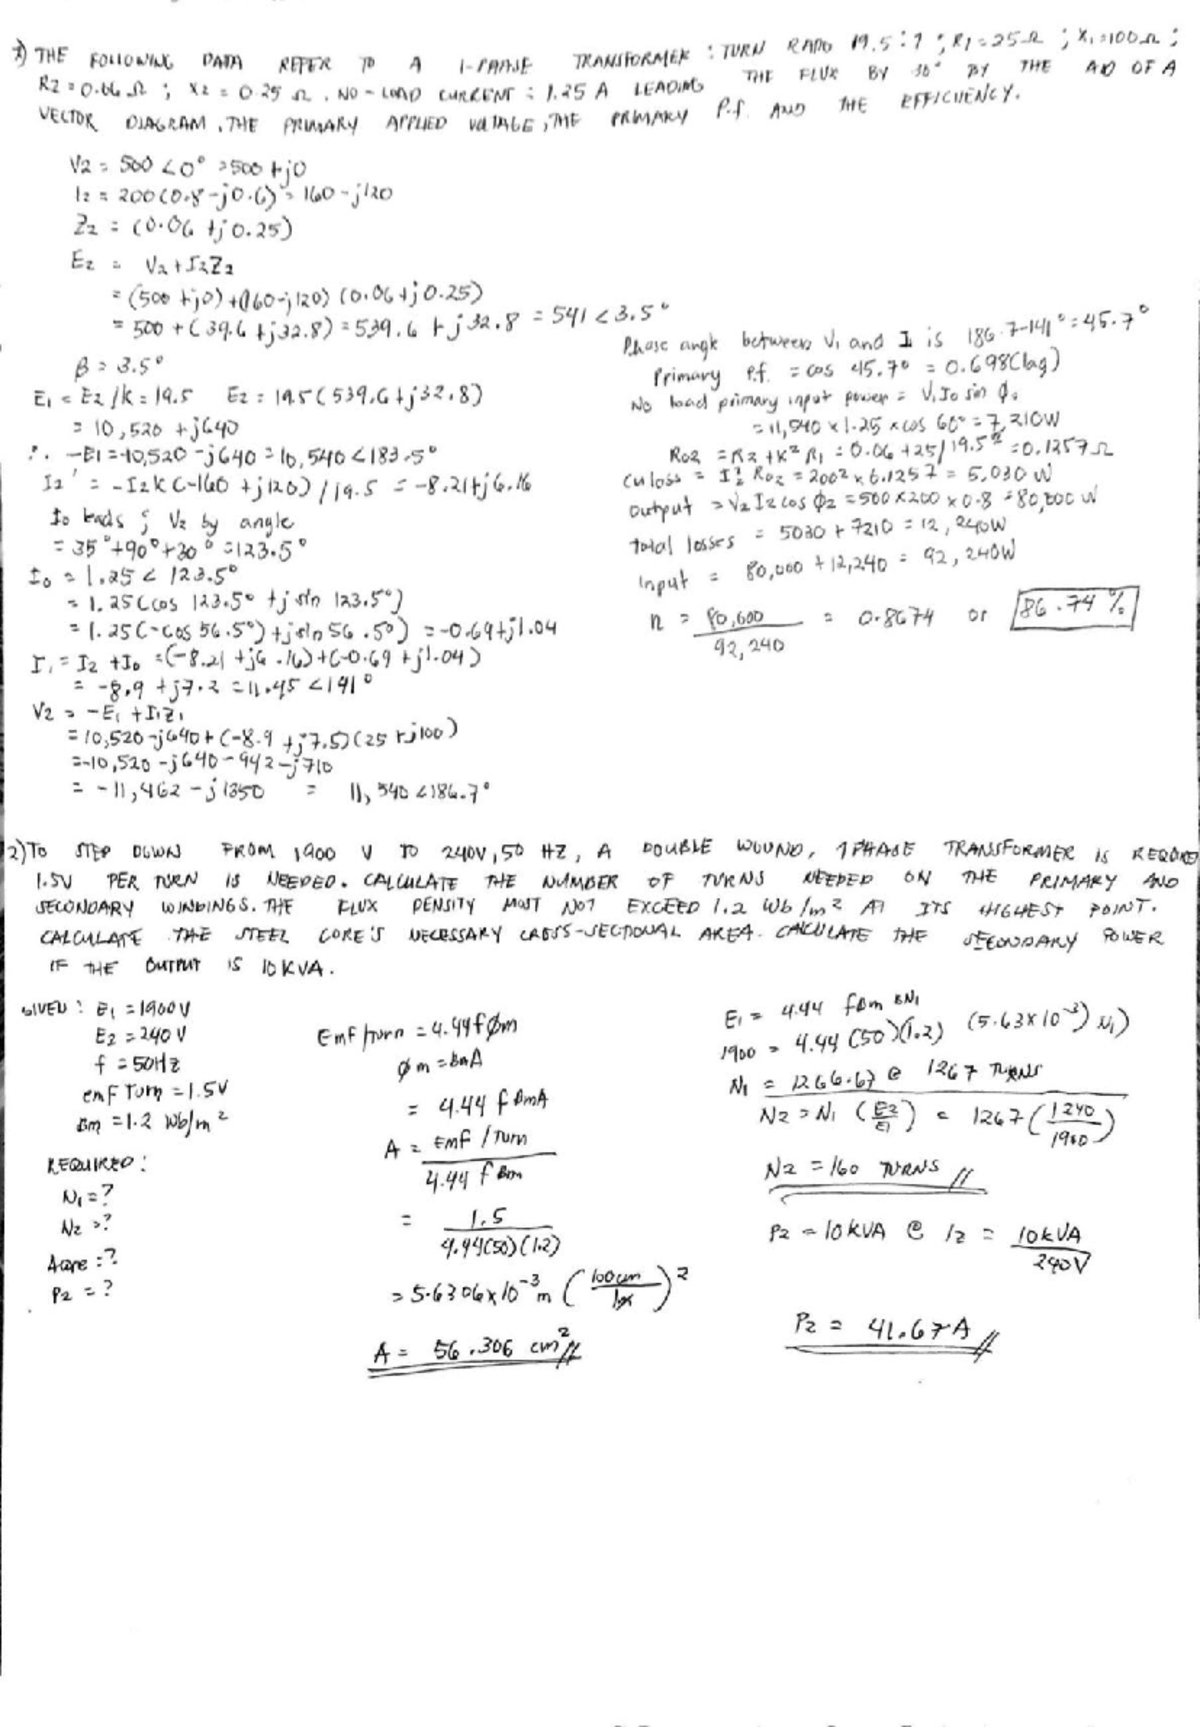 1) THE FOLLOWING DATA REFER TO A 1-PHASE TRANSFORMER : TURN RATIO 19.5 : 1 ; R1 = 25Ω ; X1 = 100Ω ;
R2 = 0.06 Ω ; X2 = 0.25 Ω . NO-LOAD CURRENT = 1.25 A LEADING THE FLUX BY 30° BY THE AID OF A
VECTOR DIAGRAM, THE PRIMARY APPLIED VOLTAGE, THE PRIMARY P.f. AND THE EFFICIENCY.
V2 = 500 <0° = 500 + j0
I2 = 200(0.8 - j0.6) = 160 - j120
Z2 = (0.06 + j0.25)
E2 = V2 + I2Z2
= (500 + j0) + (160 - j120) (0.06 + j0.25)
= 500 + (39.6 + j32.8) = 539.6 + j32.8 = 541 < 3.5°
β = 3.5°
E1 = E2/K = 19.5 E2 = 19.5 (539.6 + j32.8)
= 10,520 + j640
∴ -E1 = -10,520 - j640 = 10,540 < 183.5°
I2' = -I2K (-160 + j120) / 19.5 = -8.21 + j6.16
Io leads ; V2 by angle
= 35° + 90° + 30° = 123.5°
Io = 1.25 < 123.5°
= 1.25 (cos 123.5° + j sin 123.5°)
= 1.25 (-cos 56.5°) + j sin 56.5°) = -0.69 + j1.04
I1 = I2 + Io = (-8.21 + j6.16) + (-0.69 + j1.04)
= -8.9 + j7.2 = 11.45 < 141°
V2 = -E1 + I1Z1
= 10,520 - j640 + (-8.9 + j7.5) (25 + j100)
= -10,520 - j640 - 942 - j710
= -11,462 - j1350 = 11,540 < 186.7°
Phase angle between V1 and I1 is 186.7 - 141° = 45.7°
Primary P.f. = cos 45.7° = 0.698 (lag)
No load primary input power = V1 Io sin ϕo
= 11,540 x 1.25 x cos 60° = 7,210W
Ro2 = R2 + K² R1 = 0.06 + 25/19.5² = 0.1257 Ω
Cu loss = I2² Ro2 = 200² x 0.1257 = 5,030 W
Output = V2 I2 cos ϕ2 = 500 x 200 x 0.8 = 80,000 W
total losses = 5030 + 7210 = 12,240W
Input = 80,000 + 12,240 = 92,240W
n = 80,000 / 92,240 = 0.8674 or 86.74 %
2) TO STEP DOWN FROM 1900 V TO 240V, 50 HZ, A DOUBLE WOUND, 1 PHASE TRANSFORMER IS REQUIRED
1.5V PER TURN IS NEEDED. CALCULATE THE NUMBER OF TURNS NEEDED ON THE PRIMARY AND
SECONDARY WINDINGS. THE FLUX DENSITY MUST NOT EXCEED 1.2 Wb/m² AT ITS HIGHEST POINT.
CALCULATE THE STEEL CORE'S NECESSARY CROSS-SECTIONAL AREA. CALCULATE THE SECONDARY POWER
IF THE OUTPUT IS 10 KVA.
GIVEN : E1 = 1900V
E2 = 240 V
f = 50HZ
emf Turn = 1.5V
Bm = 1.2 Wb/m²
REQUIRED :
N1 = ?
N2 = ?
Acore = ?
P2 = ?
Emf/turn = 4.44fϕm
ϕm = BmA
= 4.44 f BmA
A = EMF / TURN
4.44 f Bm
= 1.5
4.44(50)(1.2)
= 5.6306x10⁻³m (100cm / 1m)²
A = 56.306 cm²
E1 = 4.44 f Bm AN1
1900 = 4.44 (50)(1.2) (5.63x10⁻³) N1)
N1 = 1266.67 @ 1267 TURNS
N2 = N1 (E2/E1) = 1267 (1240/1900)
N2 = 160 TURNS
P2 = 10KVA @ I2 = 10KVA
240V
P2 = 41.67 A